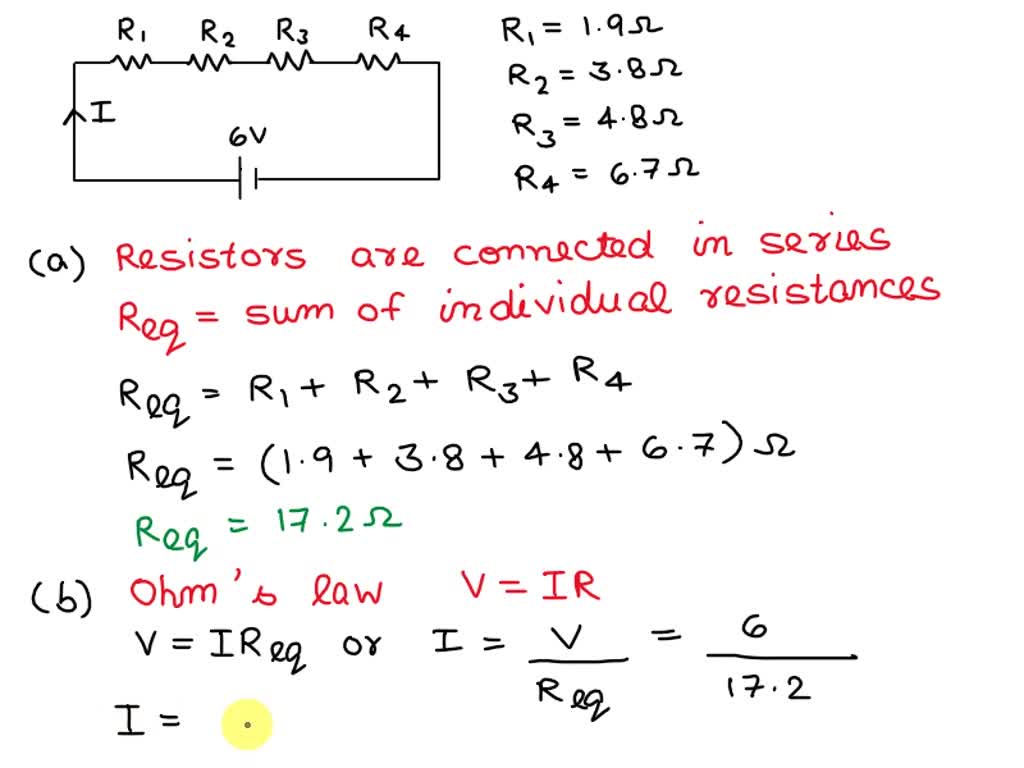 R1 R2 R3 R4
I
6V
R1 = 1.9Ω
R2 = 3.8Ω
R3 = 4.8Ω
R4 = 6.7Ω
(a) Resistors are connected in series
Req = sum of individual resistances
Req = R1 + R2 + R3 + R4
Req = (1.9 + 3.8 + 4.8 + 6.7) Ω
Req = 17.2Ω
(b) Ohm's law V = IR
V = IReq or I = V/Req = 6/17.2
I =